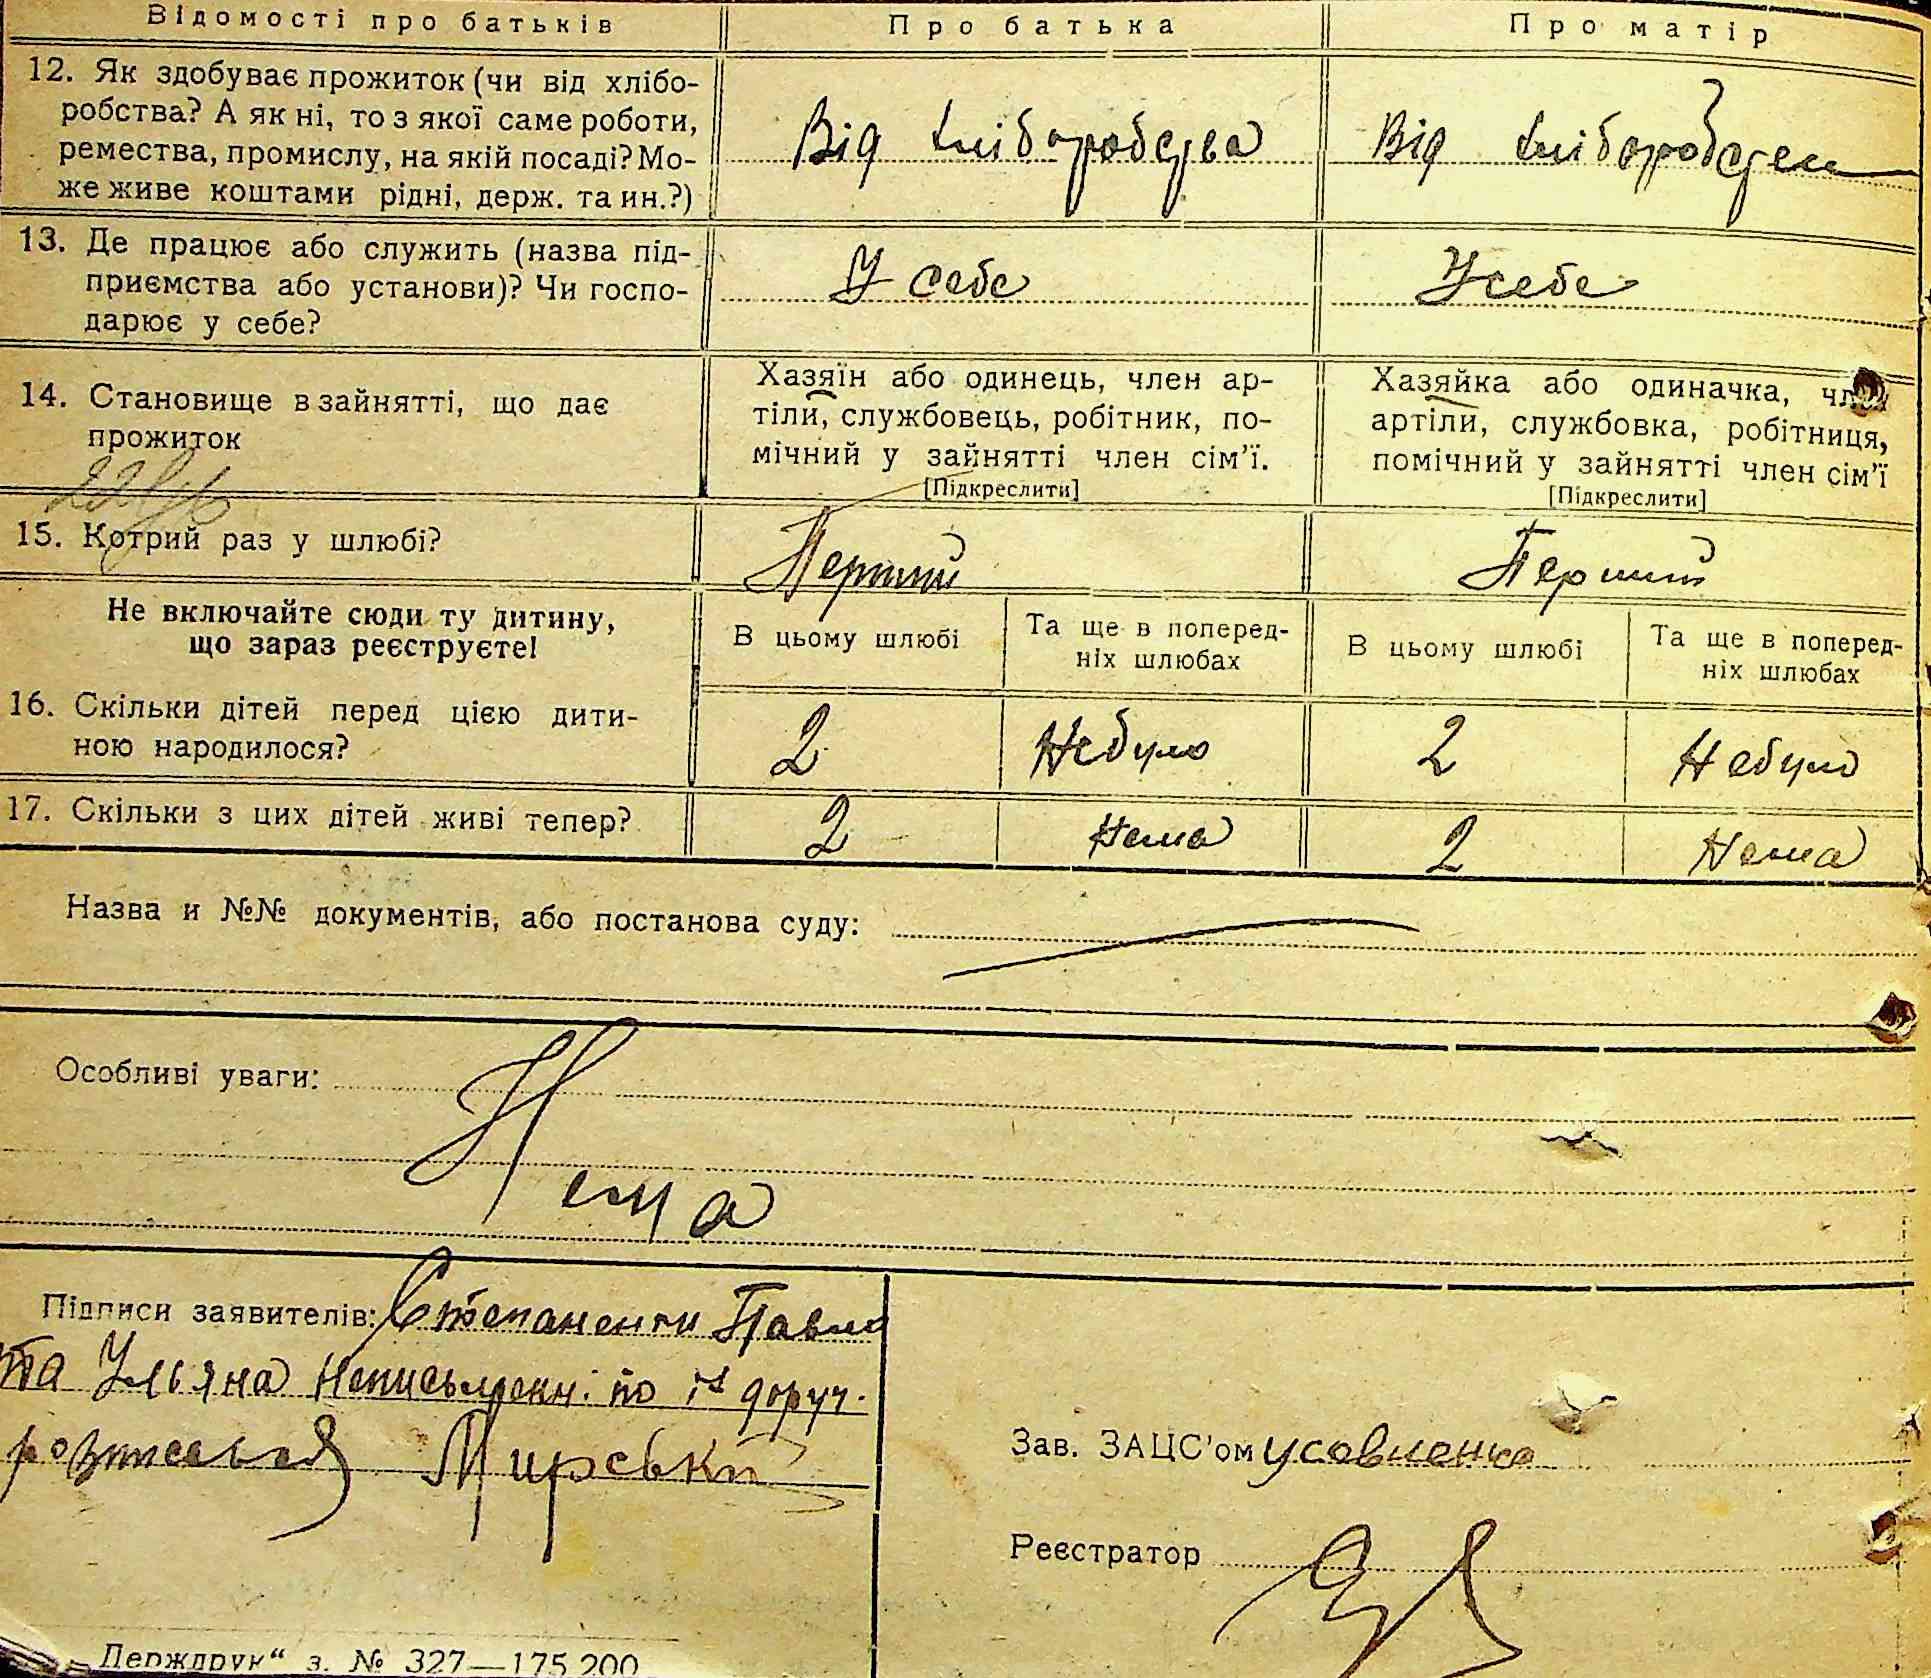 Відомості про батьків Про батька Про матір
12. Як здобуває прожиток (чи від хлібо-
робства? А як ні, то з якої саме роботи,
ремества, промислу, на якій посаді? Мо-
же живе коштами рідні, держ. та ин.?)
Від хліборобства Від хліборобства
13. Де працює або служить (назва під-
приємства або установи)? Чи госпо-
дарює у себе?
У себе У себе
14. Становище в зайнятті, що дає
прожиток
Хазяїн або одинець, член ар-
тіли, службовець, робітник, по-
мічний у зайнятті член сім'ї.
[Підкреслити]
Хазяйка або одиначка, член
артіли, службовка, робітниця,
помічний у зайнятті член сім'ї
[Підкреслити]
15. Котрий раз у шлюбі?
Перший Перший
Не включайте сюди ту дитину,
що зараз реєструєте!
В цьому шлюбі
Та ще в поперед-
ніх шлюбах
В цьому шлюбі
Та ще в поперед-
ніх шлюбах
16. Скільки дітей перед цією дити-
ною народилося?
2 Небуло 2 Небуло
17. Скільки з цих дітей живі тепер?
2 Нема 2 Нема
Назва и №№ документів, або постанова суду:
Особливі уваги:
Нема
Підписи заявителів: Степаненки Павло
та Ульяна Неписьменн. по їх доруч.
розписався Мирський
Зав. ЗАЦС'ом Усовиенко
Реєстратор
Держдрук" з. № 327—175.200